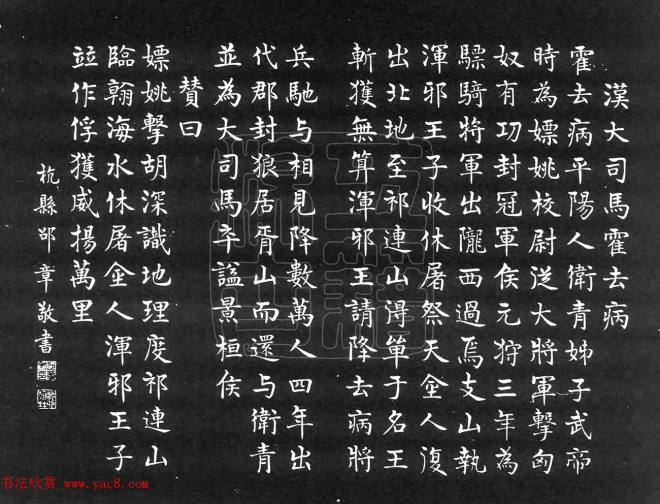 漢大司馬霍去病
霍去病平陽人衛青姊子武帝
時為嫖姚校尉從大將軍擊匈
奴有功封冠軍侯元狩三年為
驃騎將軍出隴西過焉支山執
渾邪王子收休屠祭天金人復
出北地至祁連山得單于名王
斬獲無算渾邪王請降去病將
兵馳与相見降數萬人四年出
代郡封狼居胥山而還与衛青
並為大司馬卒謚景桓侯
贊曰
嫖姚擊胡深識地理度祁連山
臨翰海水休屠金人渾邪王子
竝作俘獲威揚萬里
杭縣邵章敬書
书法欣赏 www.yac8.com